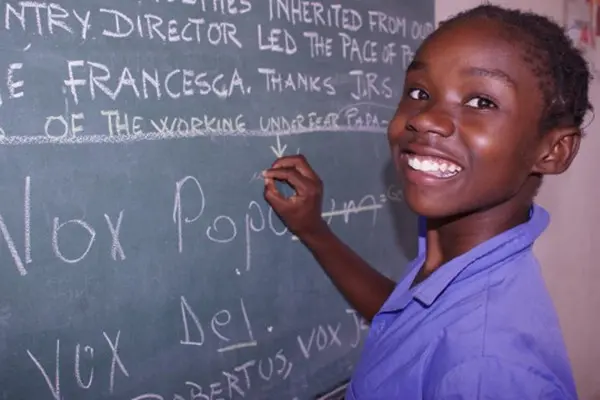 INHERITED FROM OUR
NTRY. DIRECTOR LED THE PACE OF
E FRANCESCA. THANKS
OF THE WORKING UNDERFEER PAPA-
Vox Popu
Del.
Vox
BERTUS, VOX